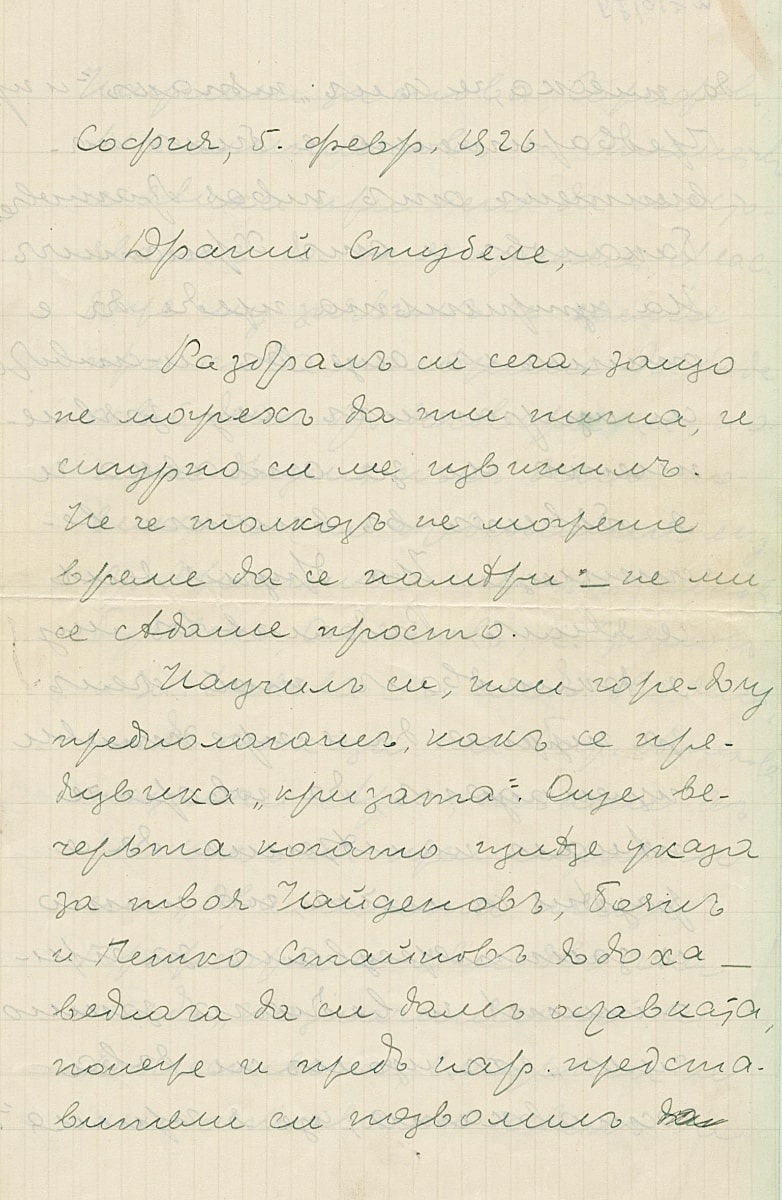 София, 5. февр. 1926
Драгий Стубеле,
Разбралъ си сега, защо
не можехъ да ти пиша, и
сигурно си ме извинилъ.
Не че толкозъ не можеше
време да се намѣри — не ми
се сѣдаше просто.
Научилъ си, или горе-долу
предполагашъ, какъ се пре-
дизвика „кризата“. Още ве-
черьта когато излѣзе указа
за твоя Найденовъ, Боянъ
и Петко Стайновъ дойдоха —
веднага да си дамъ оставката,
понеже и предъ нар. предста-
вители си позволилъ